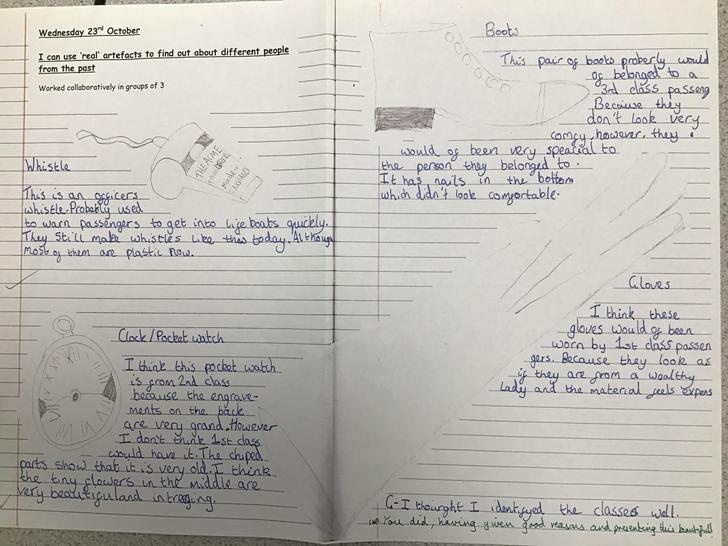 Wednesday 23rd October
I can use 'real' artefacts to find out about different people
from the past
Worked collaboratively in groups of 3
THE ACME
made in
ENGLAND
Whistle
This is an officers
whistle. Probably used
to warn passengers to get into lifeboats quickly.
They still make whistles like this today. Although
most of them are plastic now.
Clock/Pocket watch
I think this pocket watch
is from 2nd class
because the engrave-
ments on the back
are very grand. However
I don't think 1st class
would have it. The chiped
parts show that it is very old. I think
the tiny flowers in the middle are
very beautiful and intreging.
Boots
This pair of boots properly would
of belonged to a
3rd class passeng
Because they
don't look very
comfy, however, they
would of been very speatial to
the person they belonged to.
It has nails in the bottom
which didn't look comfortable.
Gloves
I think these
gloves would of been
worn by 1st class passen
gers. Because they look as
if they are from a wealthy
Lady and the material feels expens
C-I thought I identifyed the classes well.
You did, having given good reasons and presenting this beautifully!